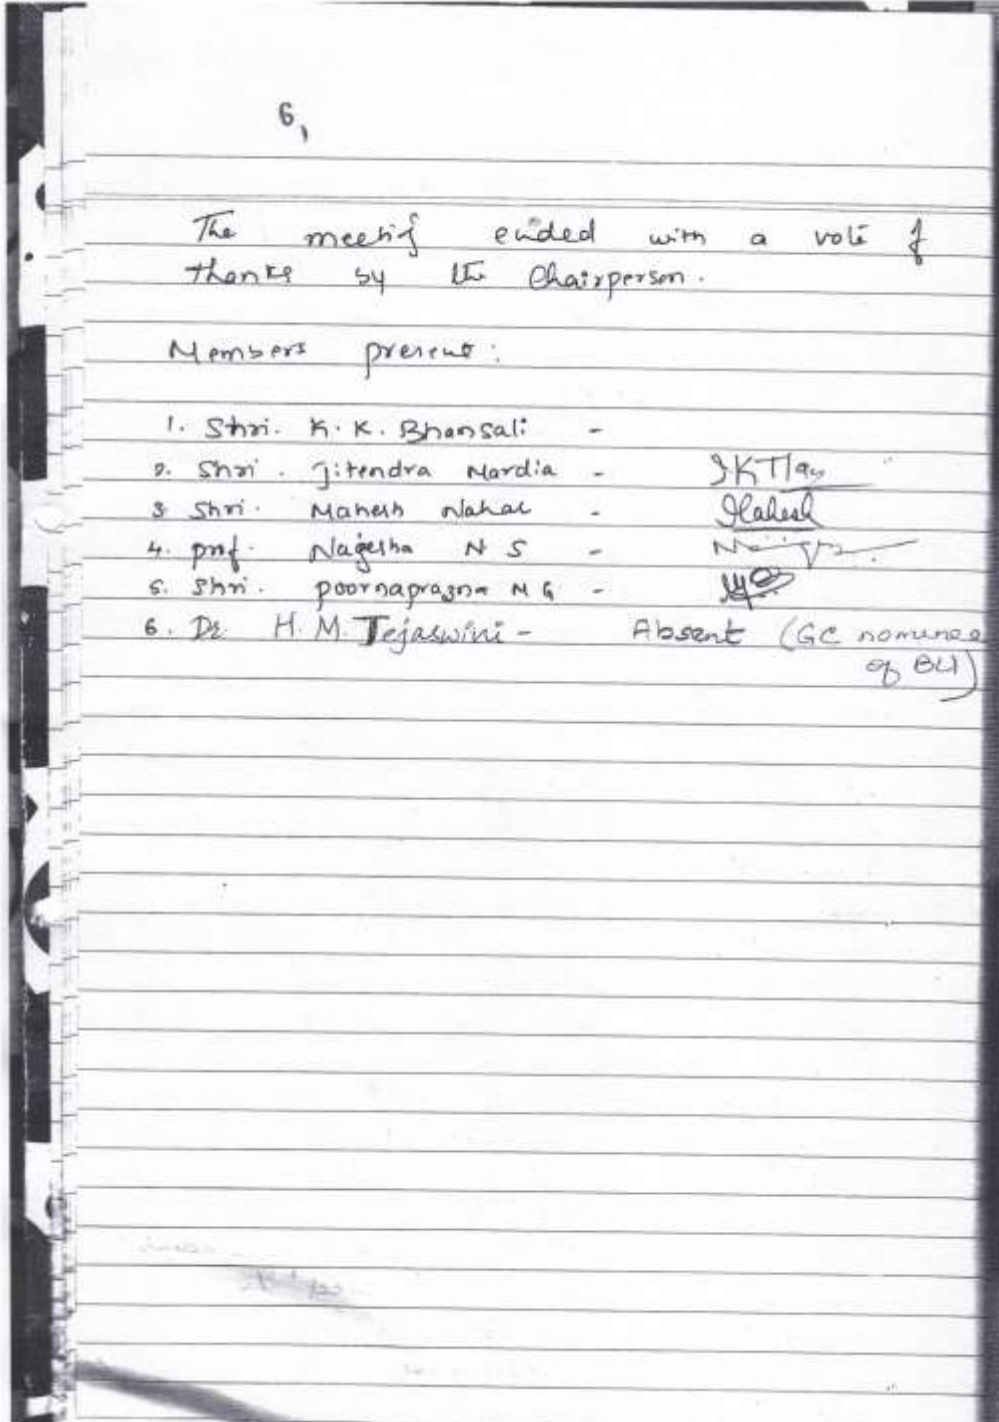 6,
The meeting ended with a vote of
thanks by the Chairperson.
Members present:
1. Shri. K. K. Bhansali -
2. Shri. Jitendra Mardia -
3 Shri. Mahesh Nahar - Mahesh
4. prof. Nagesha N S -
5. Shri. poornaprazna M G -
6. Dr. H. M. Tejaswini - Absent (GC nominee
of BU)